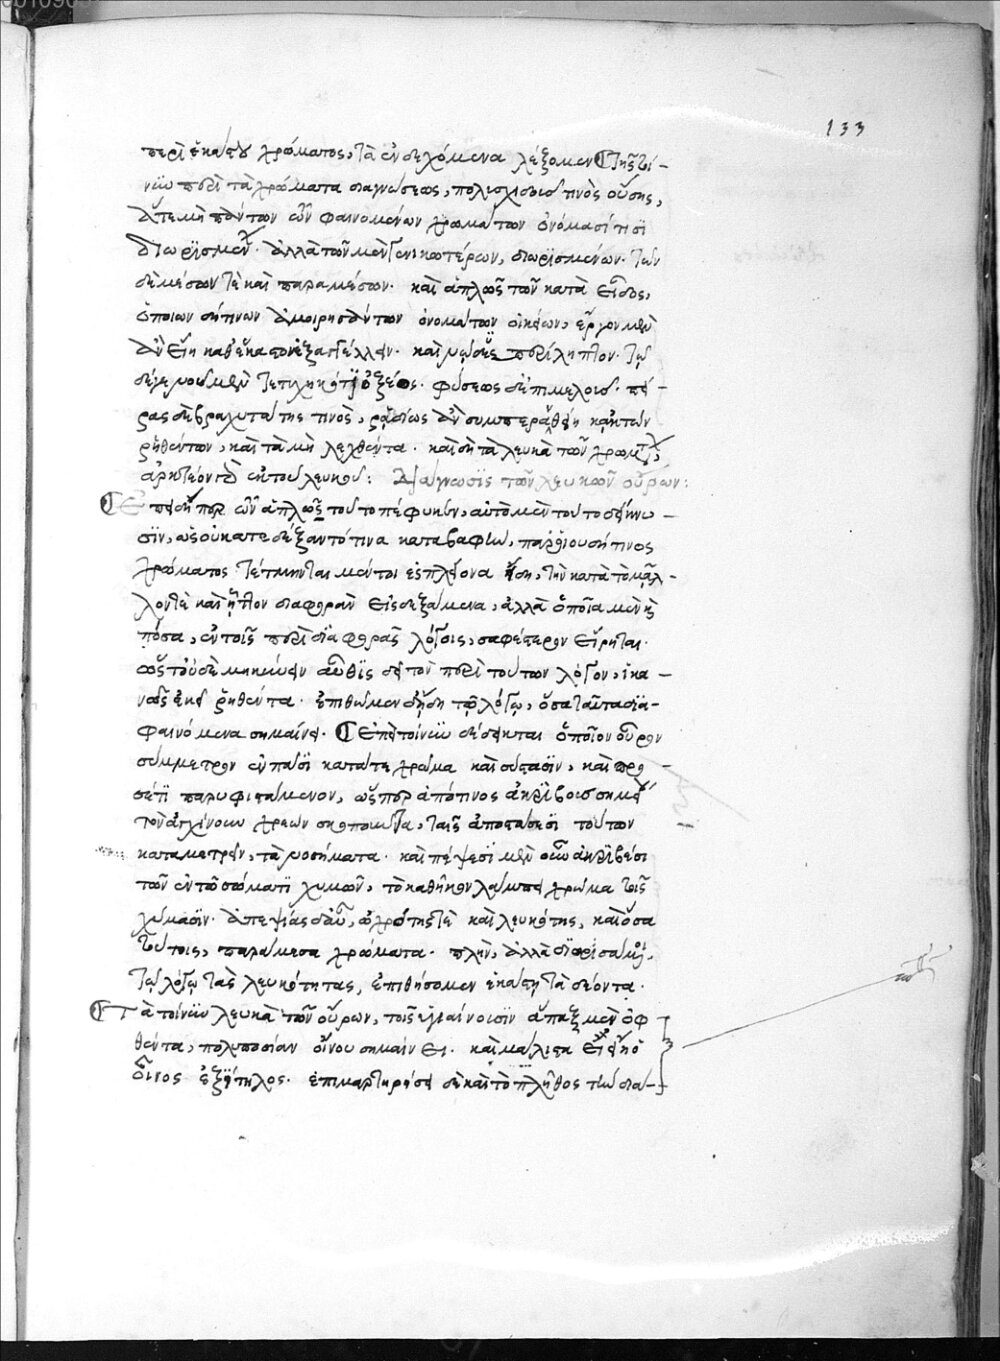 133
περὶ ἑκάστου χρώματος, τὰ ἐνδεχόμενα λέξομεν τῆς τοί-
νυν περὶ τὰ χρώματα διαγνώσεως, πολυσχιδοῦς τινὸς οὔσης,
ἅτε μὴ πάντων τῶν φαινομένων χρωμάτων ὀνόμασί τισι
διωρισμένων. ἀλλὰ τῶν μὲν γενικωτέρων, διωρισμένων. τῶν
δὲ μέσων τὲ καὶ παραμέσων. καὶ ἁπλῶς τῶν κατὰ εἶδος,
ὁποίων δήτινων ἀμοιρησάντων ὀνομάτων οἰκείων, ἔργον μὲν
ἂν εἴη καθ' ἕκαστον ἐξαγγέλλειν. καὶ
δέ γε νοῦ μὲν τετυχηκότι ὀξέος. φύσεως δ' ἐπιμελοῦς. πέ-
ρας δὲ βραχυτάτης τινὸς, ῥαδίως ἂν συμπερανθείη κἀκ τῶν
ῥηθέντων, καὶ τὰ μὴ λεχθέντα. καὶ δὴ τὰ λευκὰ τῶν χρωμάτων,
ἀρκτέον ἐκ τοῦ λευκοῦ: Διάγνωσις τῶν λευκῶν οὔρων:
Ἐπειδήπερ οὖν ἁπλῶς τοῦτο πέφυκεν, αὐτὸ μὲν τοῦτο δείκνυ-
σιν, ὡς οὐκ ἀπεδέξαντό τινα καταβαφὴν, παρεγχύσει τινος
χρώματος. τέτμηνται μέντοι ἐς πλείονα εἴδη, τὴν κατὰ τὸ μᾶλ-
λόν τὲ καὶ ἧττον διαφορὰν εἰσδεξάμενα, ἀλλὰ ὁποῖα μὲν καὶ
πόσα, ἐν τοῖς περὶ διαφορᾶς λόγοις, σαφέστερον εἴρηται.
ὡς τὸ δὲ μηκύνειν αὖθις δὲ τὸν περὶ τούτων λόγον, ἱκα-
νῶς ἐκεῖ ῥηθέντα. ἐπιθῶμεν δὴ τῷ λόγῳ, ὅσα ταῦτα δια-
φαινόμενα σημαίνει. Ἐπεὶ τοίνυν δέδεικται ὁποῖον οὖρον
σύμμετρον ἐν πᾶσι κατά τε χρῶμα καὶ σύστασιν, καὶ προ-
σέτι παρυφιστάμενον, ὥσπερ ἀπό τινος ἀκριβοῦς σημείου
τὸν ἀγχίνουν χρεὼν σκοποῦντα, ταῖς ἀποστάσεσι τούτων
καταμετρεῖν, τὰ νοσήματα. καὶ πέψεσι μὲν οὖν ἀκριβέσι
τῶν ἐν τῷ σώματι χυμῶν, τὸ καθῆκον λάμπει χρῶμα τοῖς
χύμασιν. ἀπεψίας δ' αὖ, ὠχρότης τὲ καὶ λευκότης, καὶ ὅσα
τούτοις, παράμεσα χρώματα. πλὴν, ἀλλὰ διορισάμενοι
τῷ λόγῳ τὰς λευκότητας, ἐπιθήσομεν ἑκάστῃ τὰ δέοντα.
Τὰ τοίνυν λευκὰ τῶν οὔρων, τοῖς ὑγιαίνουσιν ἅπαξ μὲν ὀφ
θέντα, πολυποσίαν οἴνου σημαίνει. καὶ μάλιστα εἰ εἴη ὁ
οἶνος ἐξίτηλος. ἐπιμαρτυρήσει δὲ καὶ τὸ πλῆθος τὴν δια-